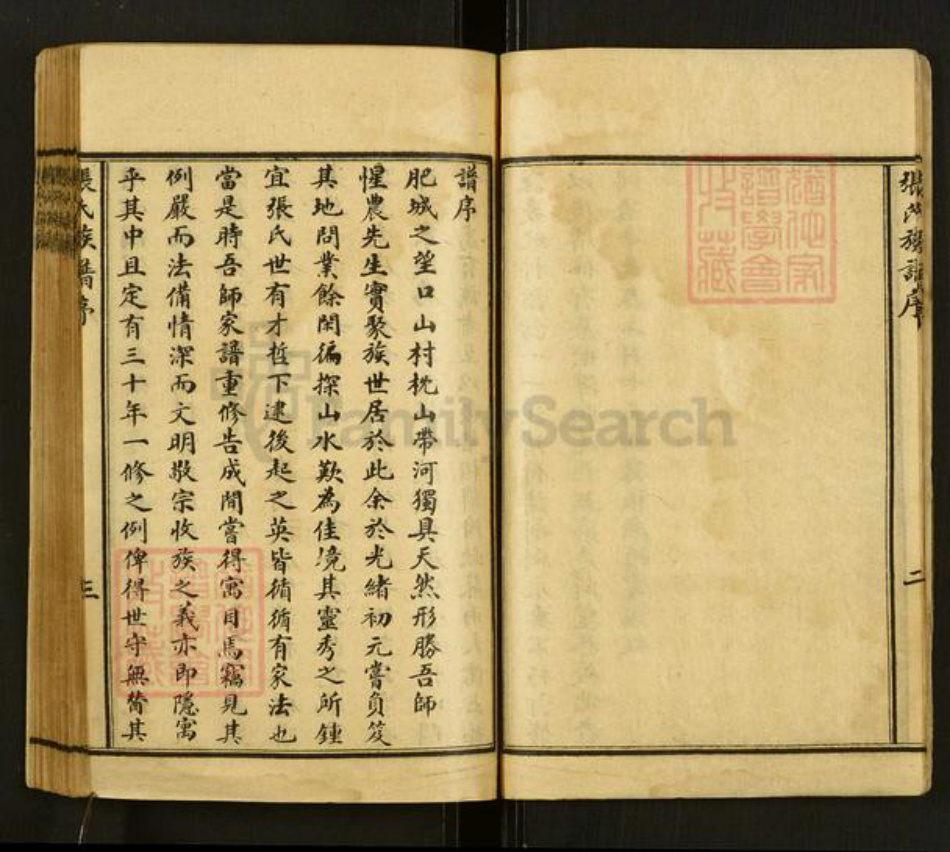 張氏族譜序
二
譜序
肥城之望口山村枕山帶河獨具天然形勝吾師
惺農先生實聚族世居於此余於光緒初元嘗負笈
其地問業餘閑徧探山水歎為佳境其靈秀之所鍾
宜張氏世有才哲下逮後起之英皆循循有家法也
當是時吾師家譜重修告成間嘗得寓目焉竊見其
例嚴而法備情深而文明敬宗收族之義亦即隱寓
乎其中且定有三十年一修之例俾得世守無替其
張氏族譜序
三
猶他家
譜學會
收藏
FamilySearch